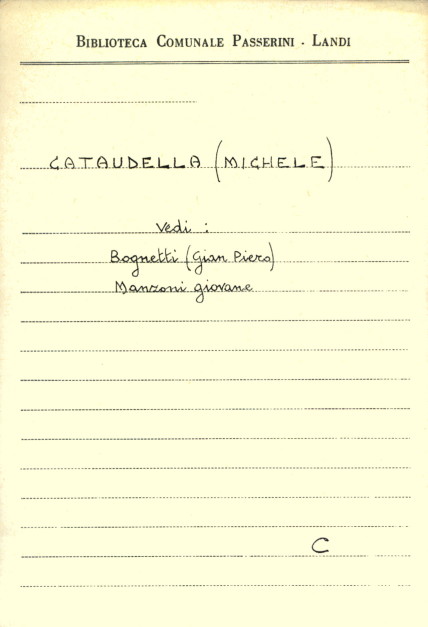 BIBLIOTECA COMUNALE PASSERINI - LANDI
CATAUDELLA (MICHELE)
Vedi :
Bognetti (Gian Piero)
Manzoni giovane
C